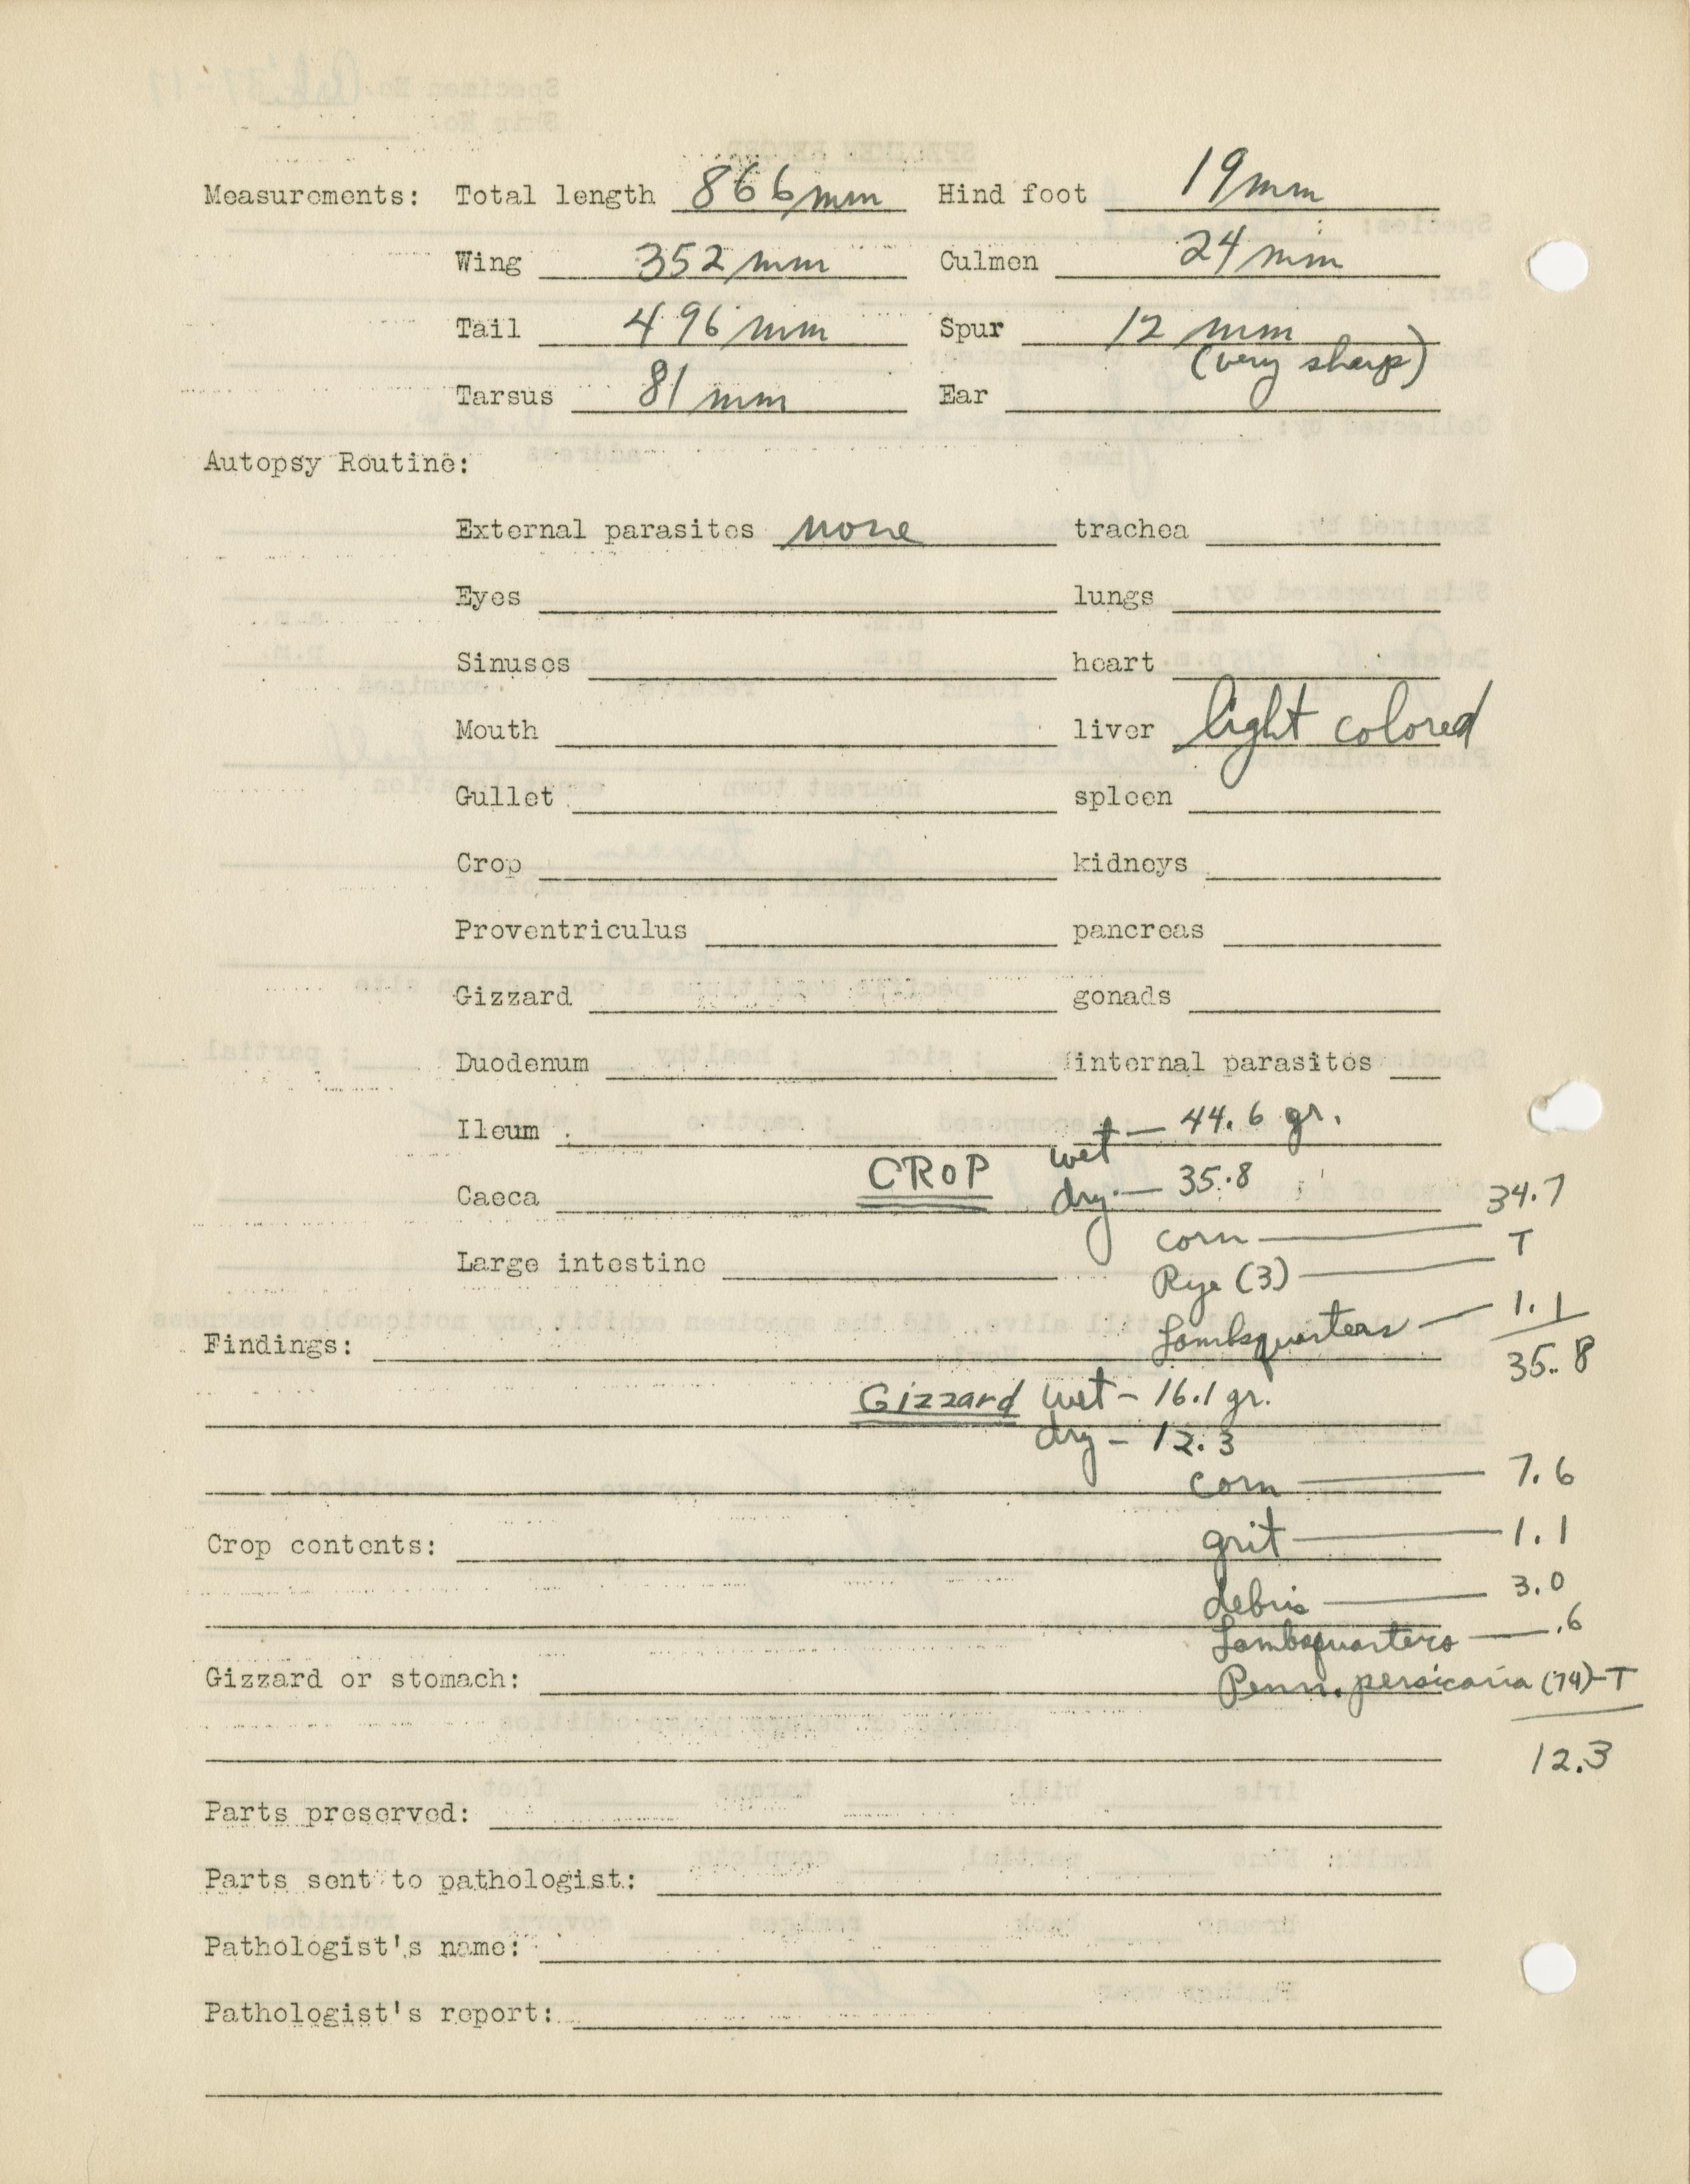 Measurements: Total length 866 mm Hind foot 19 mm
Wing 352 mm Culmen 24 mm
Tail 496 mm Spur 12 mm
(very sharp)
Tarsus 81 mm Ear
Autopsy Routine:
External parasites none trachea
Eyes lungs
Sinuses heart
Mouth liver light colored
Gullet spleen
Crop kidneys
Proventriculus pancreas
Gizzard gonads
Duodenum internal parasites
Ileum wet — 44.6 gr.
Caeca CROP dry — 35.8
corn — 34.7
Large intestine Rye (3) — T
Lambsquarters — 1.1
Findings: 35.8
Gizzard wet – 16.1 gr.
dry – 12.3
corn — 7.6
Crop contents: grit — 1.1
debris — 3.0
Lambsquarters — .6
Gizzard or stomach: Penn. persicaria (74) – T
12.3
Parts preserved:
Parts sent to pathologist:
Pathologist's name:
Pathologist's report: